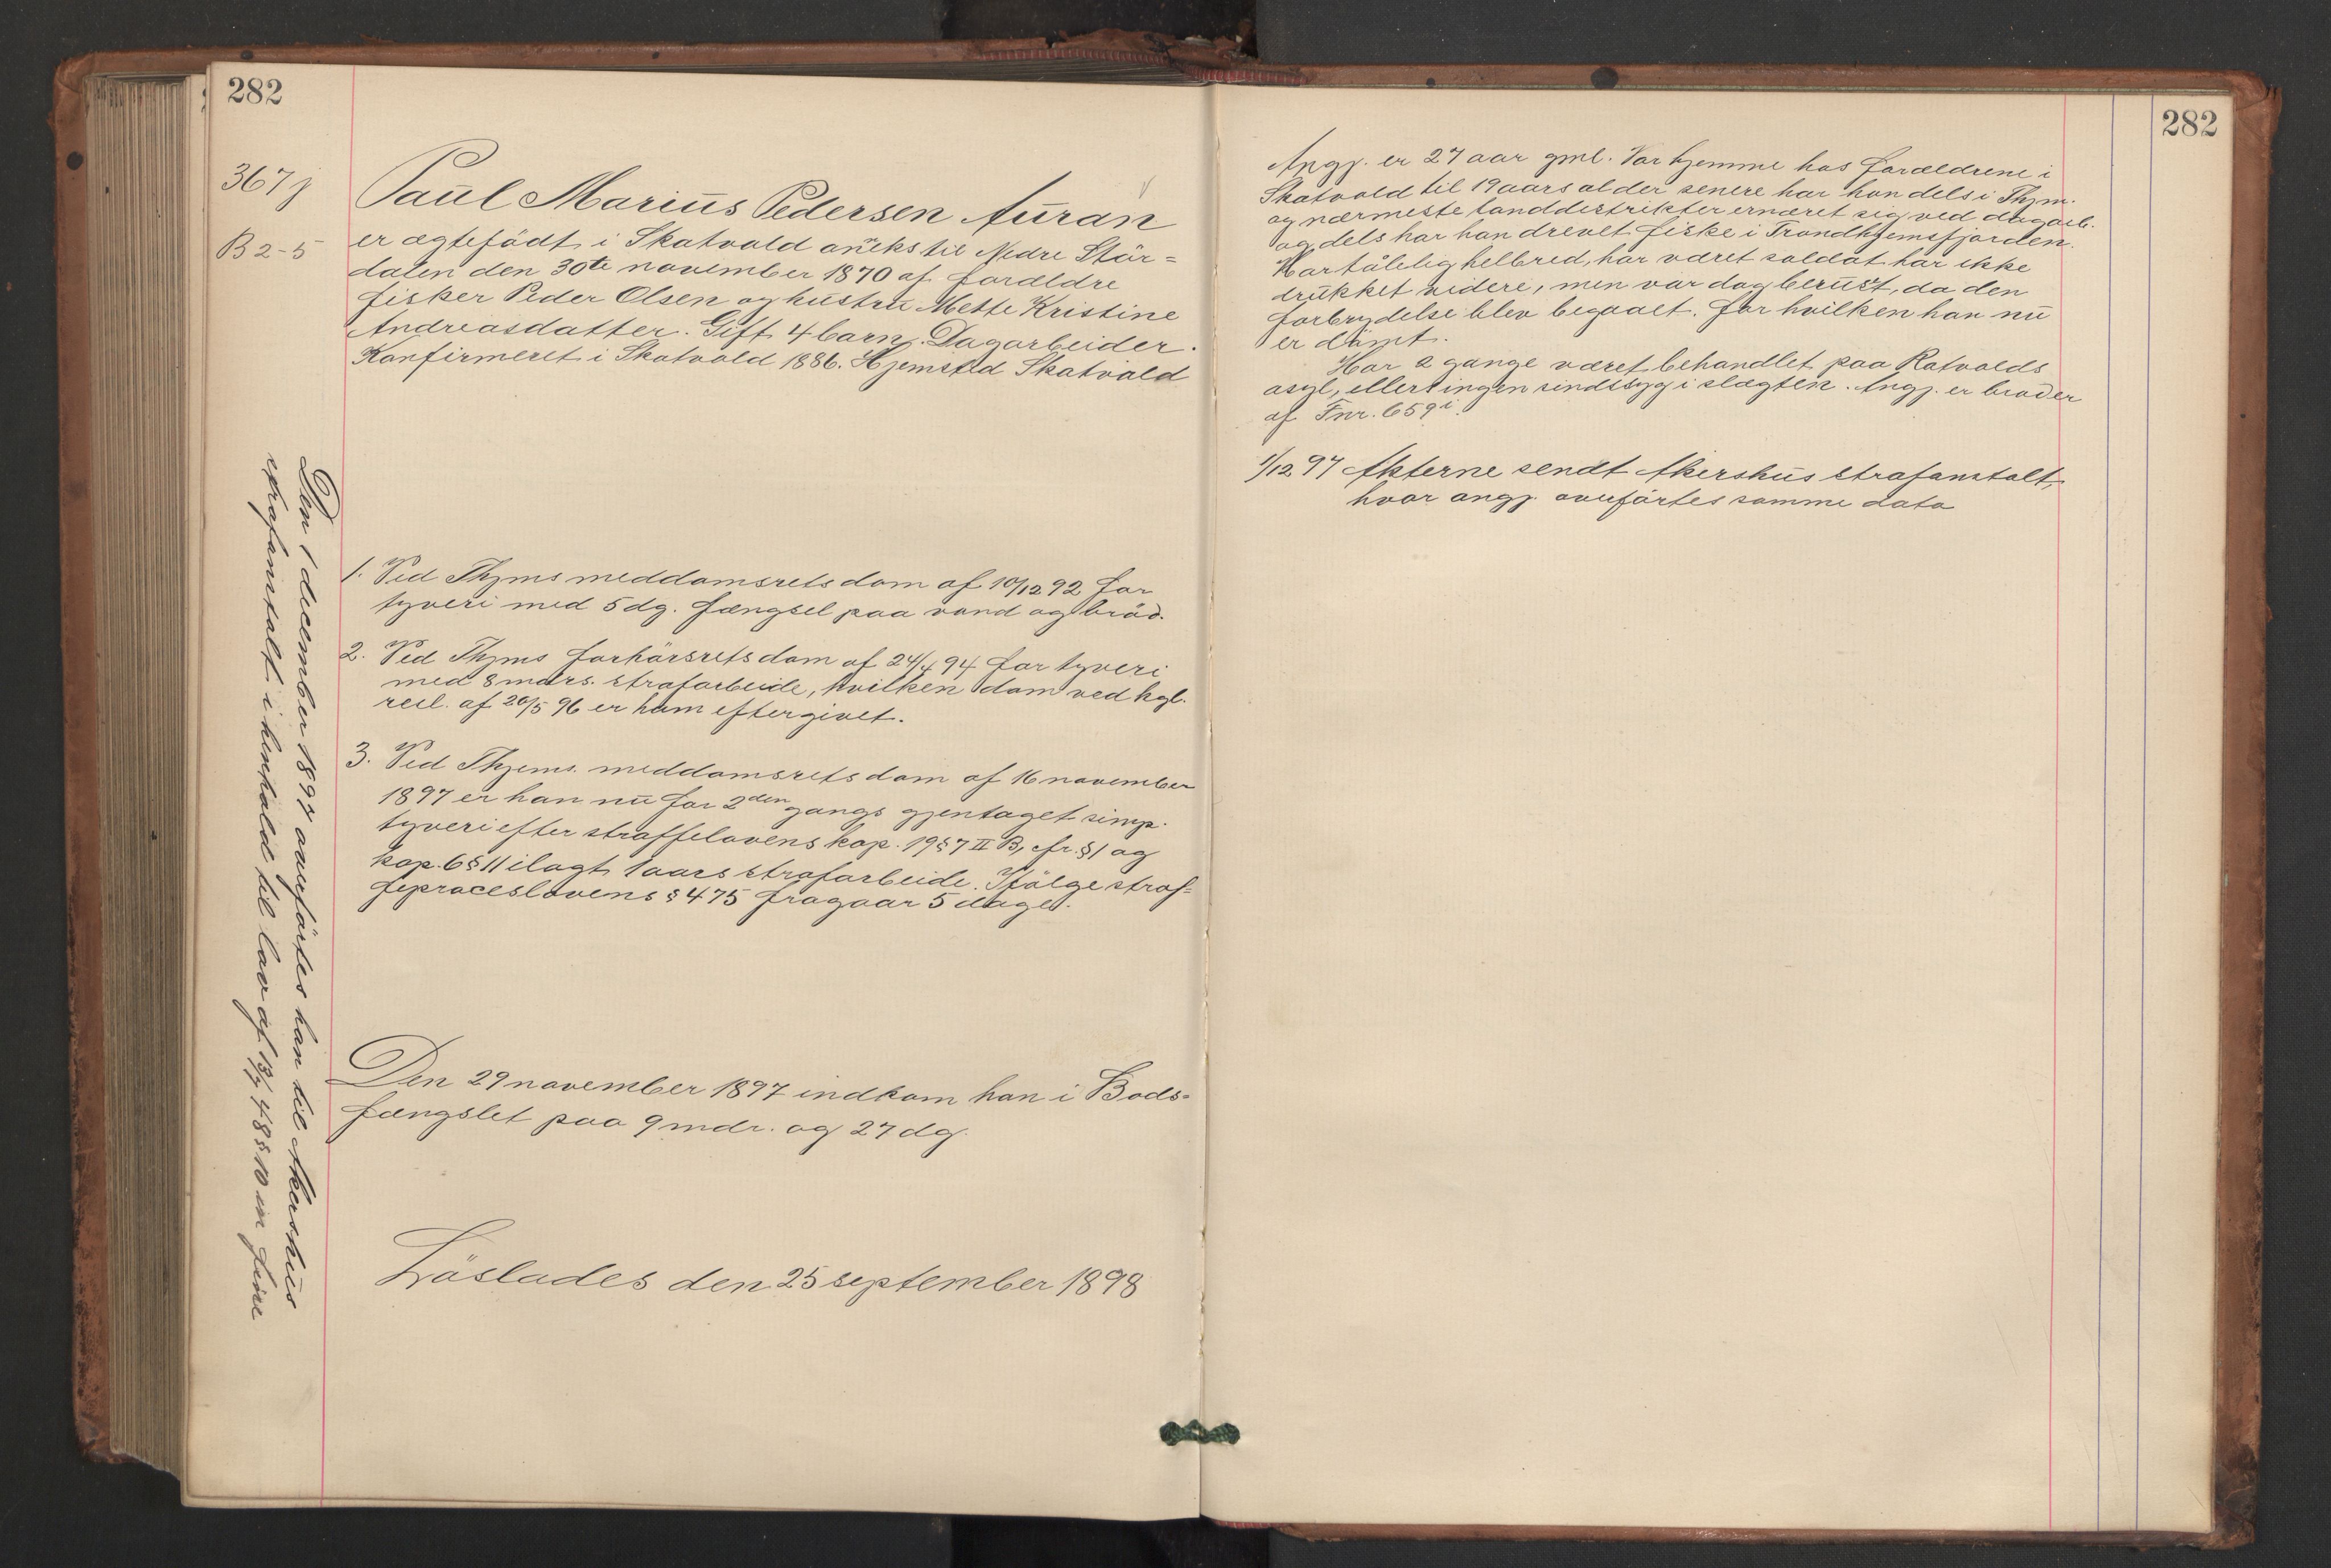 282
367 j
B 2-5
Paul Marius Pedersen Auran
er ægtefödt i Skatvold anneks til Nedre Stör=
dalen den 30te november 1870 af forældre
fisker Peder Olsen og hustru Mette Kristine
Andreasdatter. Gift 4 barn. Dagarbeider.
Konfirmeret i Skatvold 1886. Hjemsted Skatvold
1. Ved Thjms meddomsrets dom af 10/12 92 for
tyveri med 5 dg. fængsel paa vand og bröd.
2. Ved Thjms forhörsrets dom af 24/4 94 for tyveri
med 8 mdrs. strafarbeide, hvilken dom ved kgl.
resl. af 20/5 96 er ham eftergivet.
3. Ved Thjems. meddomsrets dom af 16 november
1897 er han nu for 2den gangs gjentaget simp.
tyveri efter straffelovens kap. 19 § 7 II B, cfr. § 1 og
kap. 6 § 11 ilagt 1 aars strafarbeide. Ifölge straf=
feproceslovens § 475 fragaar 5 dage.
Den 29 november 1897 indkom han i Bods=
fængslet paa 9 mdr. og 27 dg.
Löslades den 25 september 1898
Den 1 december 1897 overförtes han til Akershus
strafanstalt i henhold til lov af 13/7 48 § 10 in fine
282
Angj. er 27 aar gml. Var hjemme hos forældrene i
Skatvold til 19 aars alder senere har han dels i Thjm.
og nærmeste landdistrikter ernæret sig ved dagarb.
og dels har han drevet fiske i Trondhjemsfjorden.
Har tålelig helbred, har været soldat har ikke
drukket videre, men var dog beruset, da den
forbrydelse blev begaaet. for hvilken han nu
er dömt.
Har 2 gange været behandlet paa Rotvolds
asyl, ellers ingen sindssyg i slægten. Angj. er broder
af Fnr. 659 i.
1/12 97 Akterne sendt Akershus strafanstalt,
hvor angj. overförtes samme dato